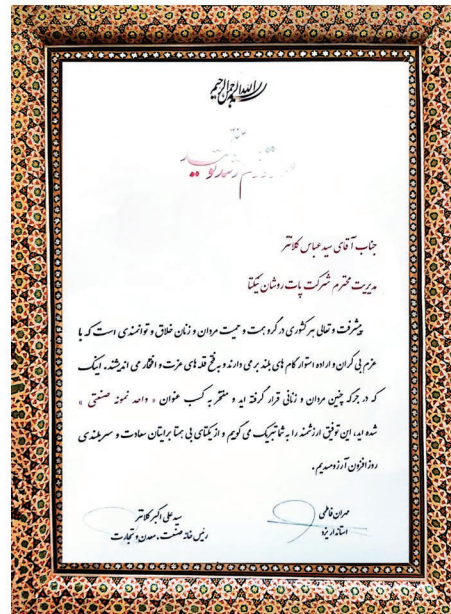 بسم الله الرحمن الرحیم
جناب آقای سید عباس کلانتر
مدیریت محترم شرکت پات روشان یکتا
پیشرفت و تعالی هر کشوری در گرو همت و حمیت مردان و زنان خلاق و توانمندی است که با
عزم بی کران و اراده استوار گام های بلند برمی دارند و به فتح قله های عزت و افتخار می اندیشند. اینک
که در جرگه چنین مردان و زنانی قرار گرفته اید و مفتخر به کسب عنوان « واحد نمونه صنعتی »
شده اید، این توفیق ارزشمند را به شما تبریک می گویم و از یکتای بی همتا برایتان سعادت و سربلندی
روزافزون آرزومندیم.
مهران فاطمی
استاندار یزد
سید علی اکبر کلانتر
رئیس خانه صنعت، معدن و تجارت